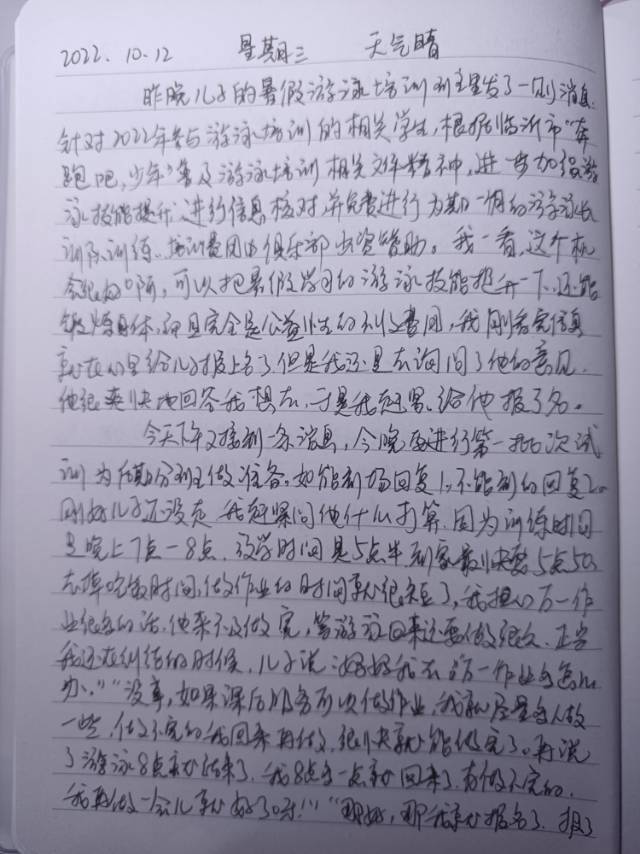 2022.10.12 星期三 天气晴
昨晚儿子的暑假游泳培训班主星发了一则消息,
针对2022年参与游泳培训的相关学生,根据临沂市“奔
跑吧,少年”普及游泳培训相关文件精神,进一步加强游
泳技能提升,进行信息核对并免费进行为期一周的游泳
训练,培训费用由俱乐部出资赞助。我一看,这个机
会很好啊,可以把暑假学习的游泳技能提升一下,还能
锻炼身体,而且完全是公益性的不收费用,我刚看完信息
就在心里给儿子报上名了,但是我还是去询问了他的意见,
他很爽快地回答我想去,于是我赶紧给他报了名。
今天下午又接到一条消息,今晚要进行第一批次试
训为后期分班做准备。如能到场回复1,不能到的回复2。
刚好儿子还没走,我赶紧问他什么打算,因为训练时间
是晚上7点-8点,放学时间是5点半,到家最快要5点50,
去掉吃饭时间,做作业的时间就很短了,我担心万一作
业很多的话,他来不及做完,等游泳回来还要做很久,正当
我还在纠结的时候,儿子说:“妈妈我去”“万一作业多怎么
办”“没事,如果课后服务可以做作业,我就尽量多做
一些,做不完的我回来再做,很快就能做完了。再说
了游泳8点就结束了,我8点多一点就回来了,有做不完的,
我再做一会儿就好了呀!”“那好,那我就报名了,报了